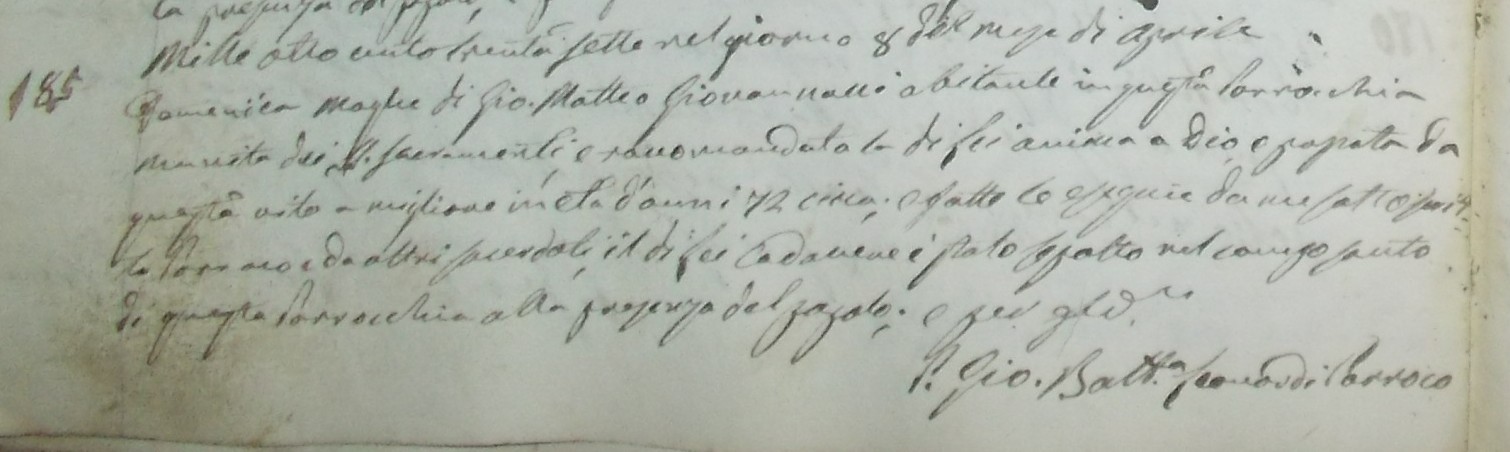 la presenza del popolo,
Mille otto cento trenta sette nel giorno 8 del mese di Aprile
185
Domenica moglie di Gio. Matteo Giovannacci abitante in questa Parrocchia
munita dei SS. Sacramenti, e raccomandata la di lei anima a Dio, e passata da
questa vita a migliore in età d'anni 72 circa; e fatte le esequie da me sottoscrit-
to Parroco e da altri sacerdoti, il di lei Cadavere è stato sepolto nel campo santo
di questa Parrocchia alla presenza del popolo; e per
P. Gio. Batt.a Leonardi Parroco